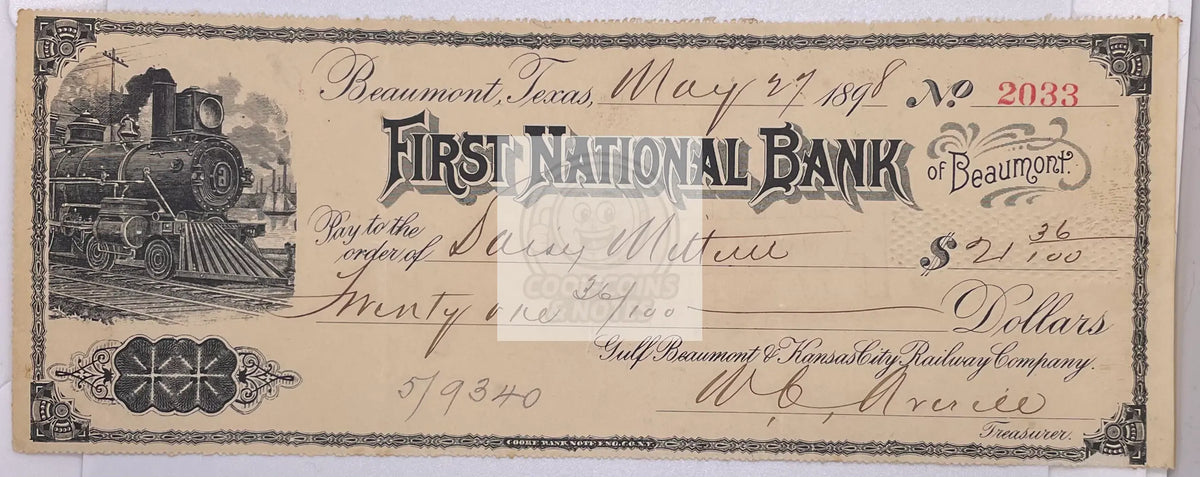 Beaumont, Texas, May 27 1898 No 2033
FIRST NATIONAL BANK of Beaumont.
Pay to the
order of Daisy $ 21 36/100
Twenty one 36/100 Dollars
Gulf Beaumont & Kansas City Railway Company.
5/9340
W. C. Averill
Treasurer.
COOKE BANK NOTE ENG. CO. N.Y.
COOKIE COINS
& NOTES